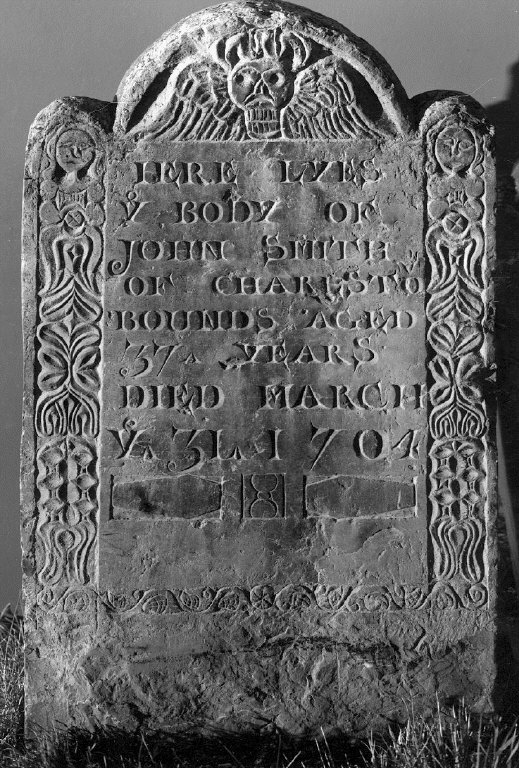 HERE LYES
Ẏ BODY OF
JOHN SMITH
OF CHARLSTO
BOUNDS AGED
37 YEARS
DIED MARCH
Ẏ 31 1704